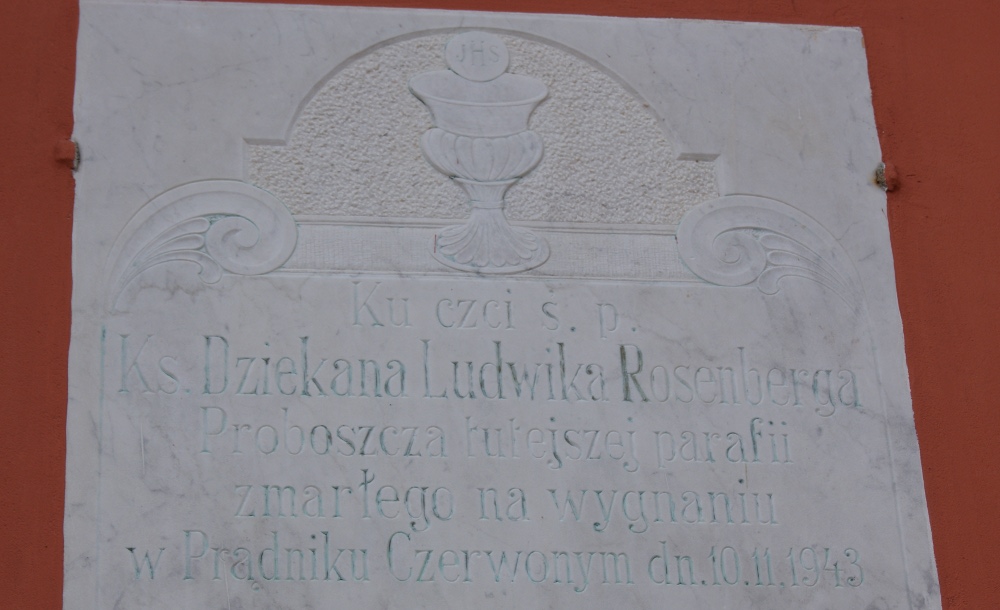 JHS
Ku czci s. p.
Ks. Dziekana Ludwika Rosenberga
Proboszcza tutejszej parafii
zmarłego na wygnaniu
w Prądniku Czerwonym dn. 10.11.1943